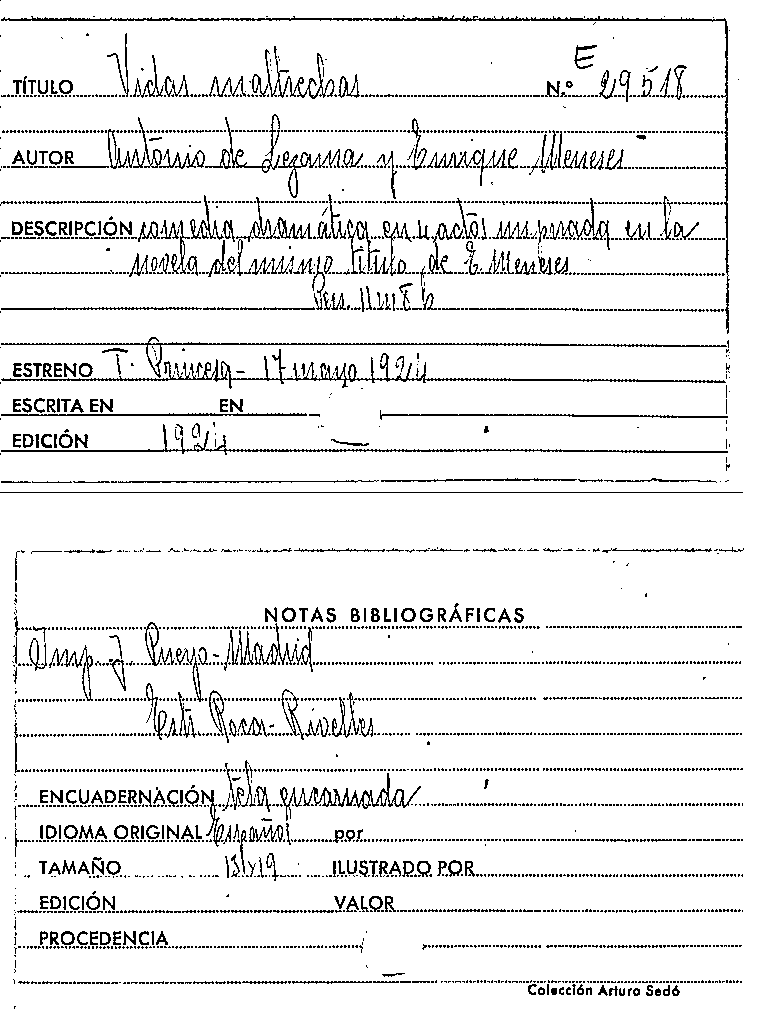 E
TÍTULO Vidas maltrechas N.º 29518
AUTOR Antonio de Lezama y Enrique Meneses
DESCRIPCIÓN comedia dramática en 4 actos inspirada en la
novela del mismo título de E. Meneses
ESTRENO T. Princesa - 17 mayo 1924
ESCRITA EN EN
EDICIÓN 1924
NOTAS BIBLIOGRÁFICAS
Imp. J. Pueyo - Madrid
Estr. Roca - Rivelles
ENCUADERNACIÓN tela encarnada
IDIOMA ORIGINAL Español por
TAMAÑO 13x19 ILUSTRADO POR
EDICIÓN VALOR
PROCEDENCIA
Colección Arturo Sedó